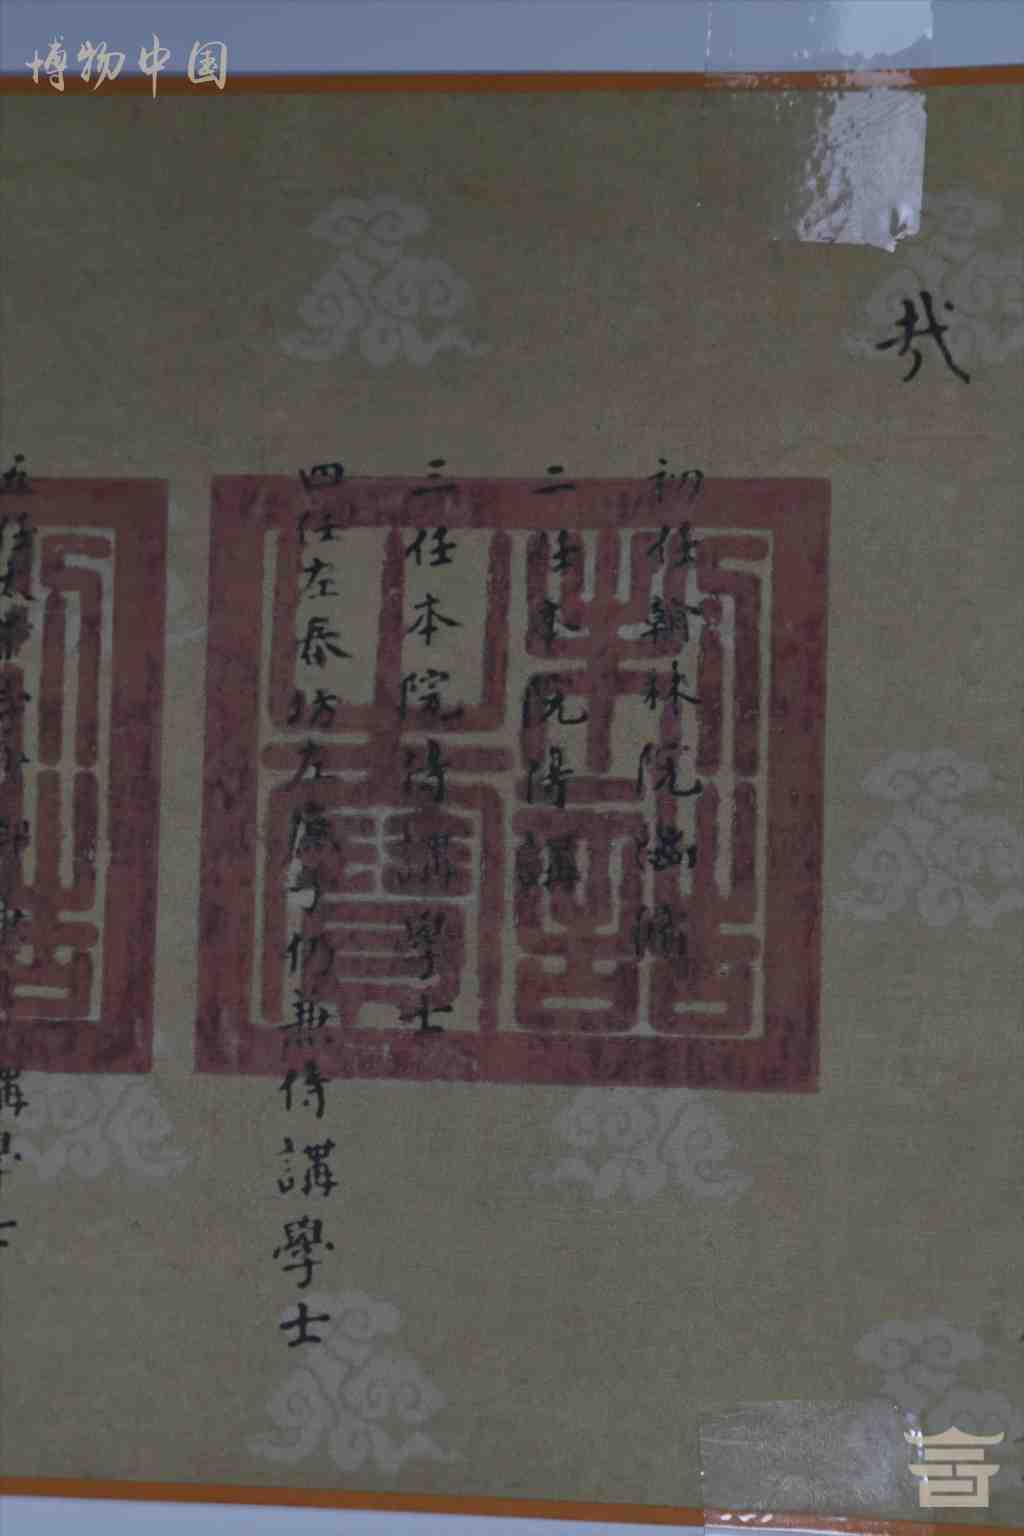 博物中国
哉
初任翰林院編修
二任本院侍講
三任本院侍講學士
四任左春坊左庶子仍兼侍講學士
五任太常寺
講學士